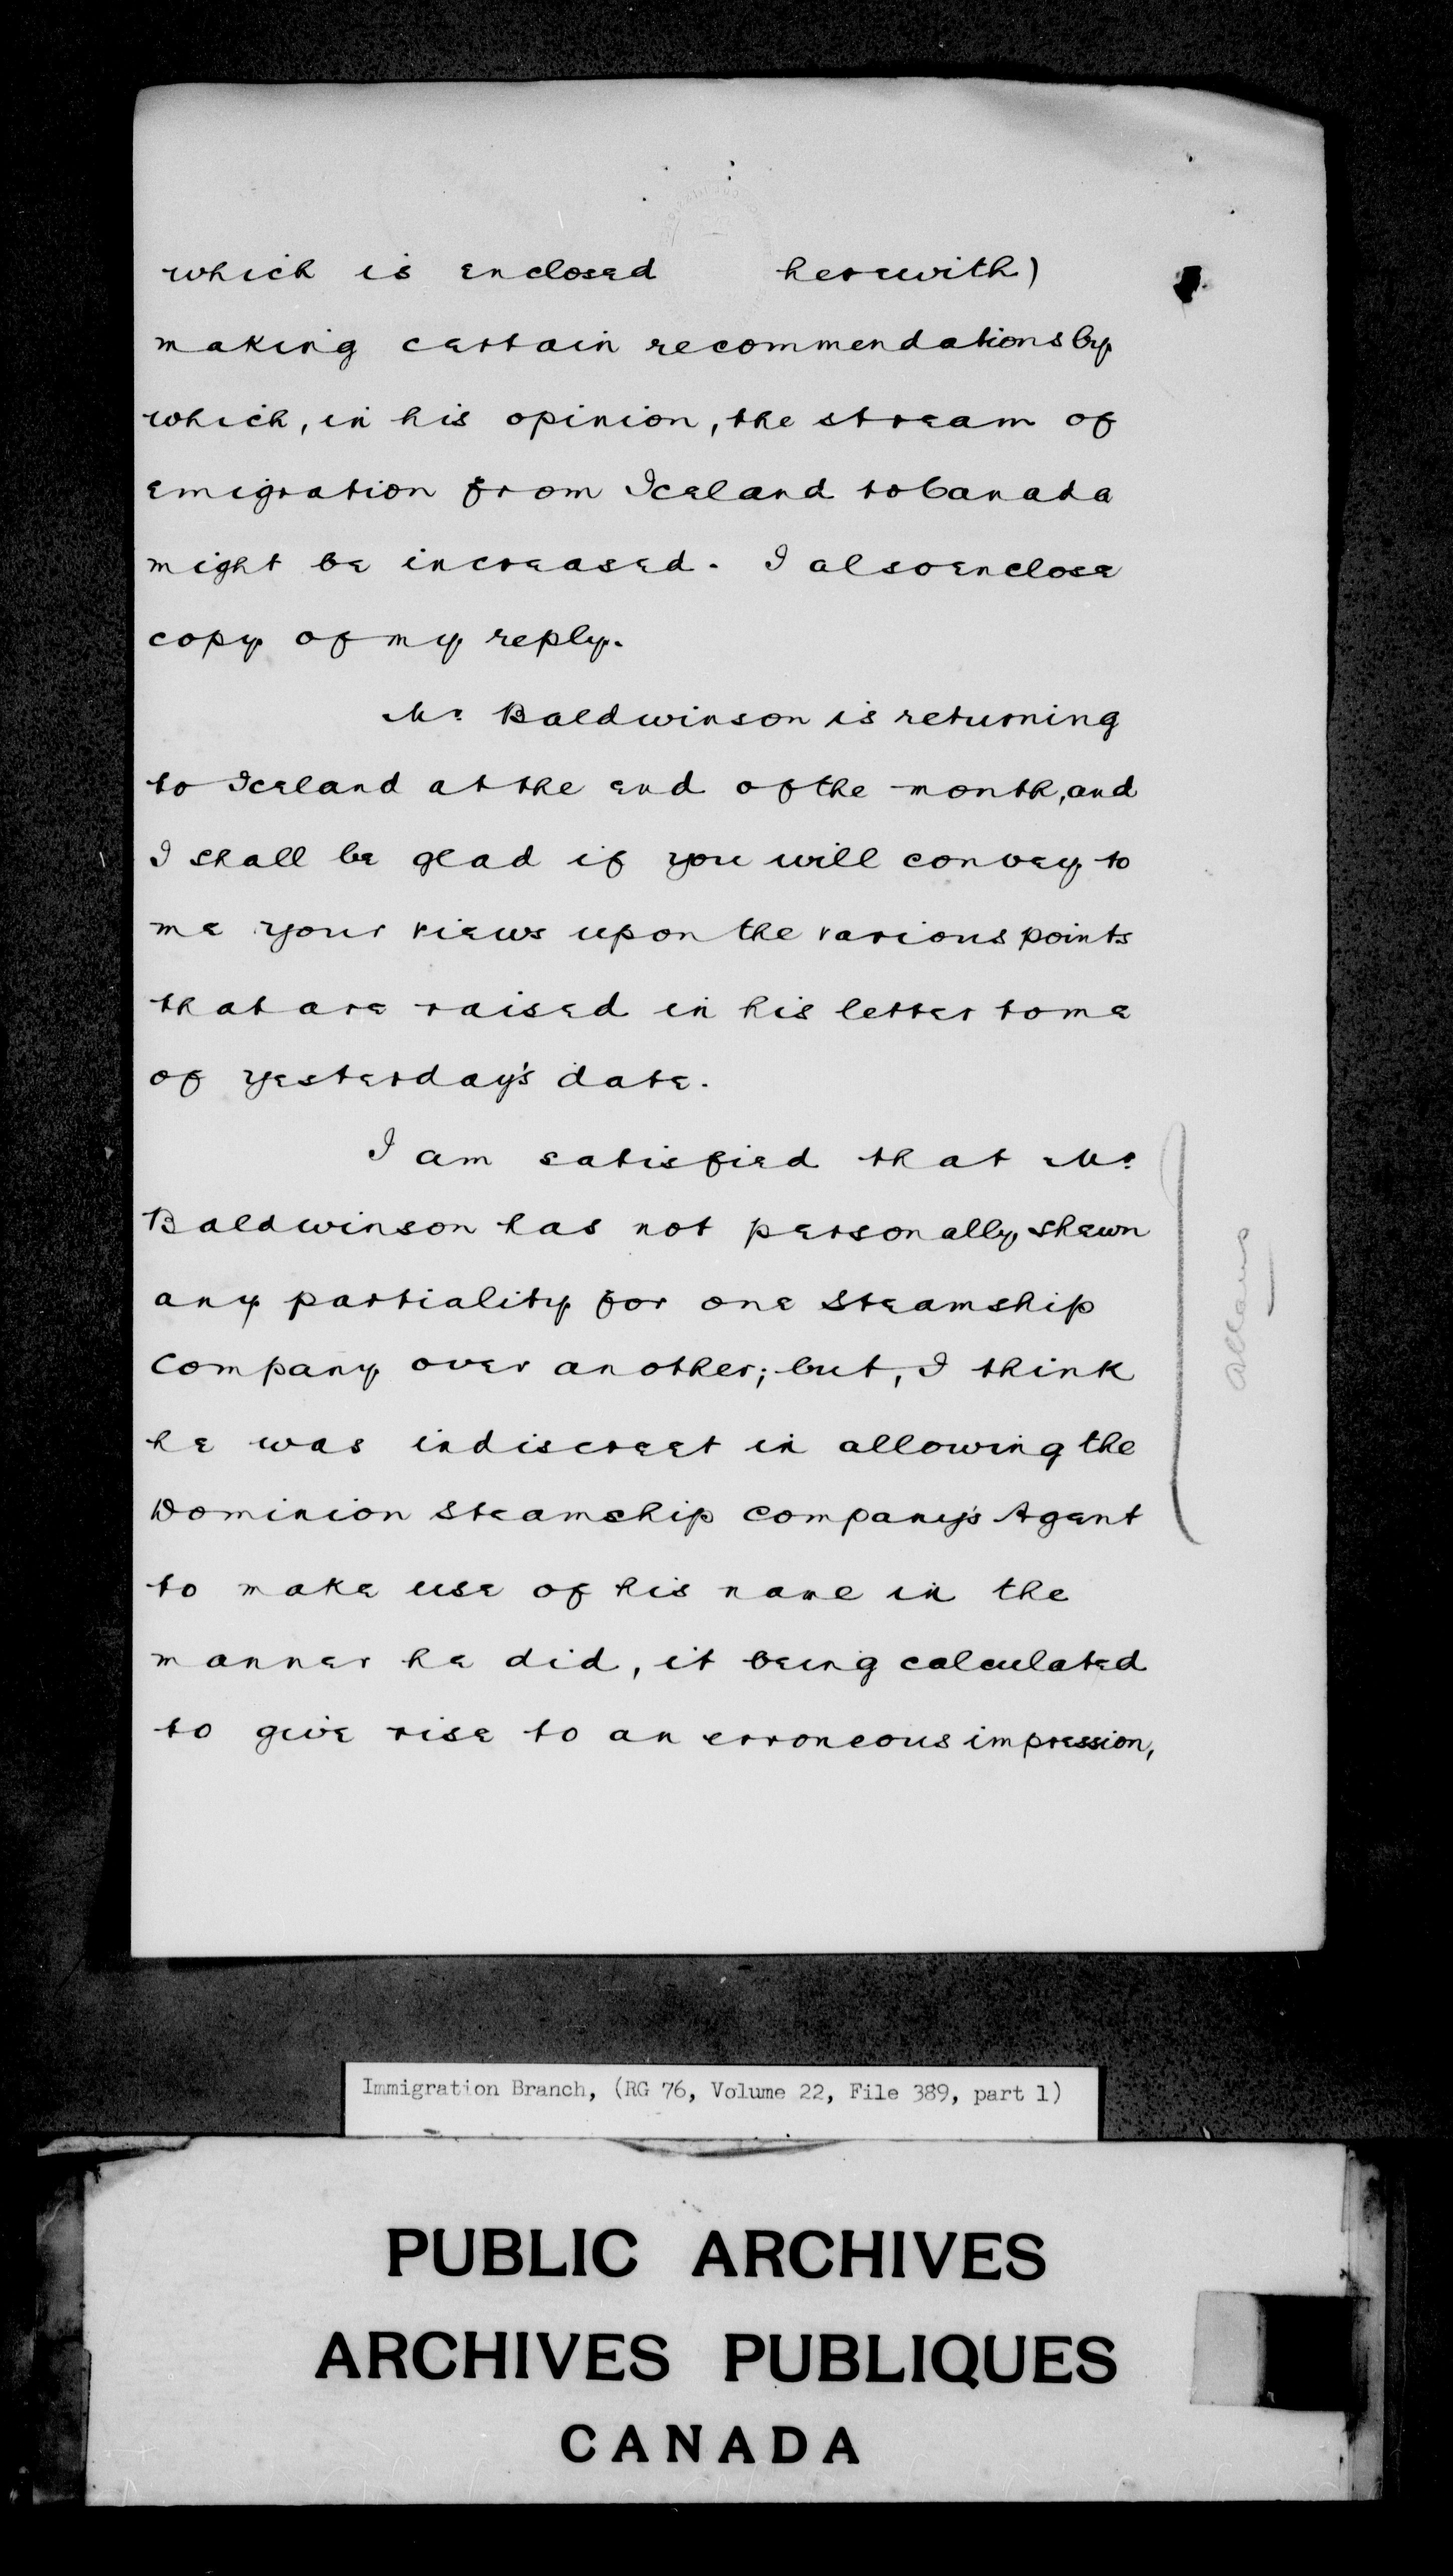 which is enclosed herewith)
making certain recommendations by
which, in his opinion, the stream of
emigration from Iceland to Canada
might be increased. I also enclose
copy of my reply.
Mr Baldwinson is returning
to Iceland at the end of the month, and
I shall be glad if you will convey to
me your views upon the various points
that are raised in his letter to me
of yesterday's date.
I am satisfied that Mr
Baldwinson has not personally shewn
any partiality for one Steamship
Company over another; but, I think
he was indiscreet in allowing the
Dominion Steamship Company's Agent
to make use of his name in the
manner he did, it being calculated
to give rise to an erroneous impression,
Allans
Immigration Branch, (RG 76, Volume 22, File 389, part 1)
PUBLIC ARCHIVES
ARCHIVES PUBLIQUES
CANADA